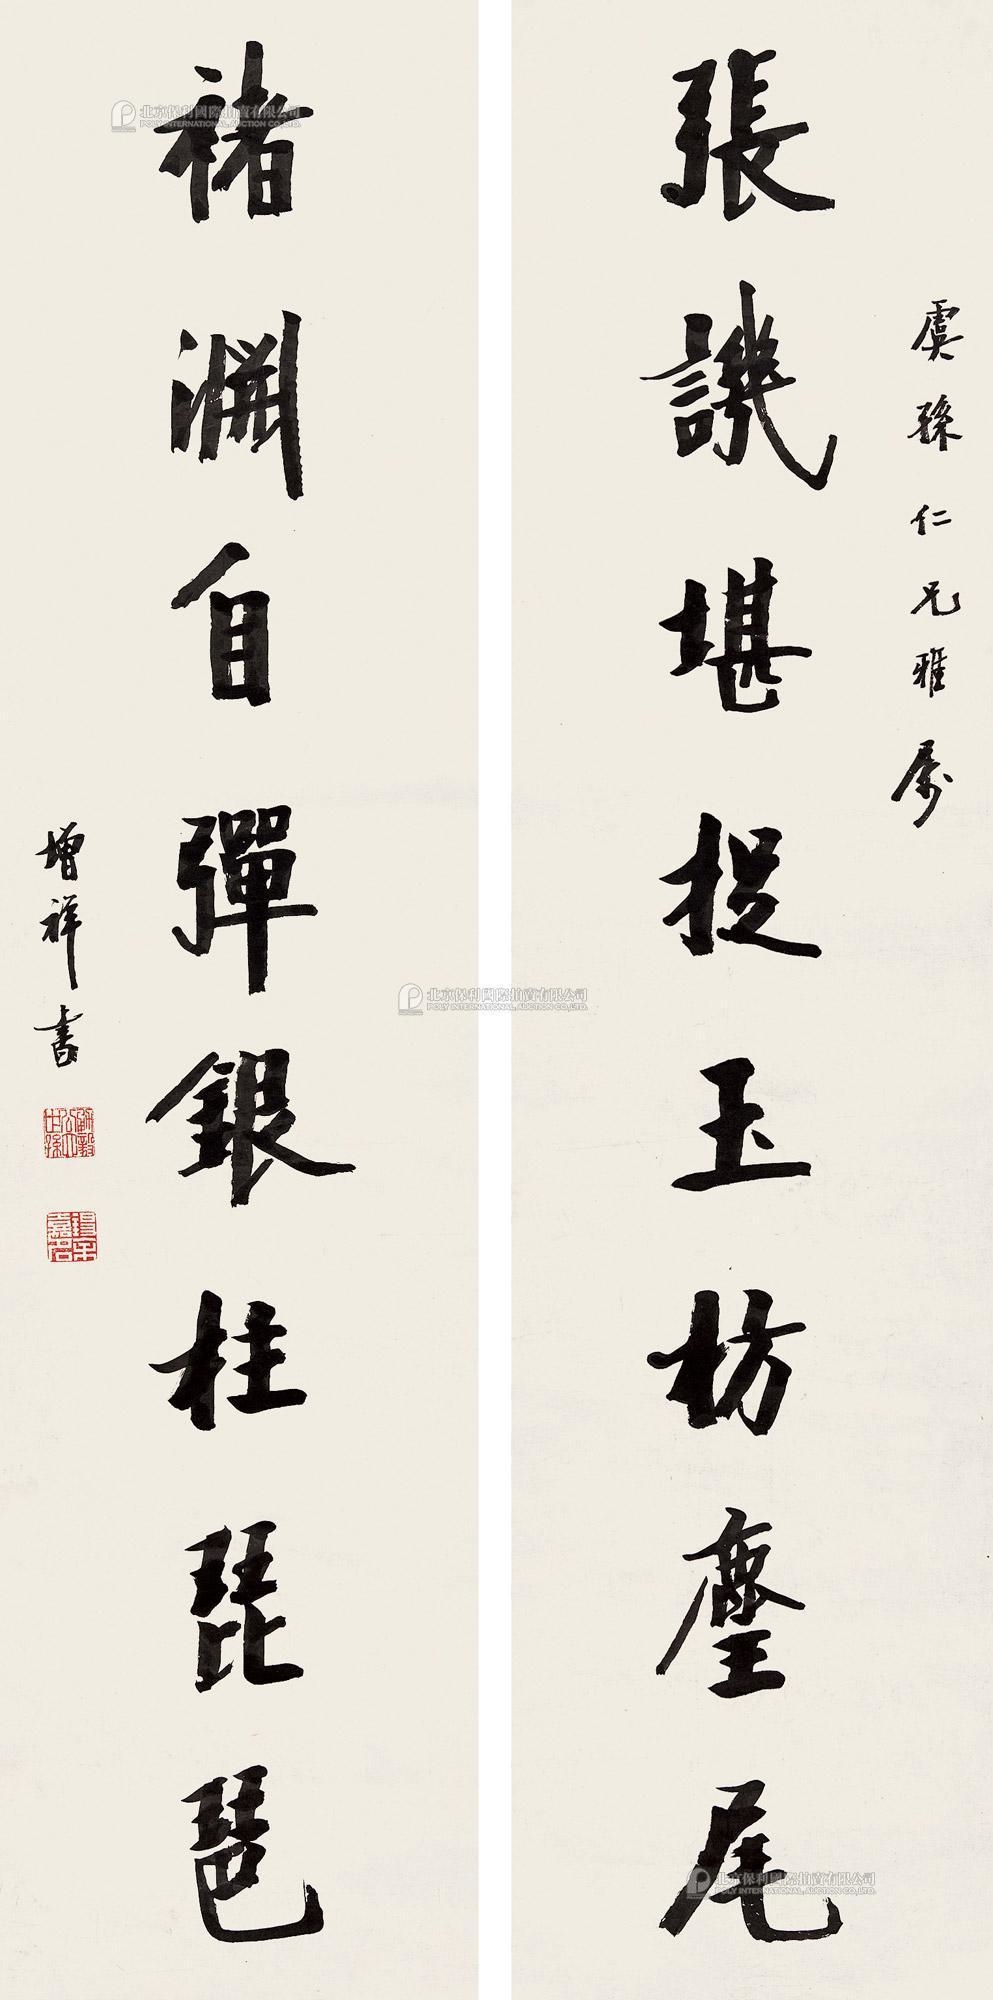 虞孫仁兄雅屬
張譏堪捉玉枋麈尾
褚淵自彈銀柱琵琶
增祥書
北京保利國際拍賣有限公司
POLY INTERNATIONAL AUCTION CO.,LTD.
北京保利國際拍賣有限公司
POLY INTERNATIONAL AUCTION CO.,LTD.
北京保利國際拍賣有限公司
POLY INTERNATIONAL AUCTION CO.,LTD.